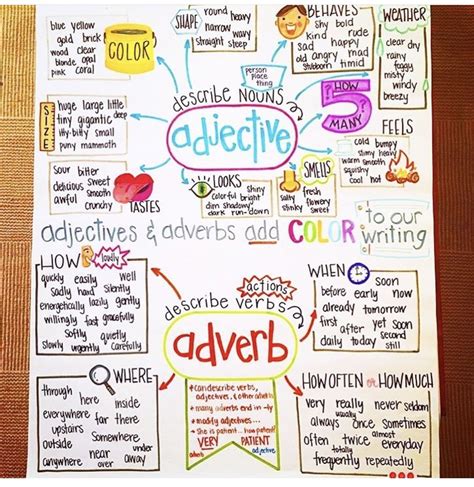 blue yellow
gold brick
wood clear
blonde opal
pink coral
COLOR
SHAPE
round heavy
narrow hairy
wavy
straight steep
BEHAVES
shy bold
kind rude
sad happy
old angry mad
stubborn timid
WEATHER
clear dry
rainy
foggy
misty
windy
breezy
person
place
thing
describe NOUNS
adjective
HOW
5
MANY
SIZE
huge large little
tiny gigantic deep
itty-bitty small
puny mammoth
FEELS
cold bumpy
warm smooth
squishy
cool hot
sour bitter
delicious sweet
awful smooth
crunchy
TASTES
LOOKS
shiny
colorful bright
dim shadowy
dark run-down
SMELLS
salty fresh
stinky flowery
sweet
adjectives & adverbs add COLOR to our
writing
HOW
loudly
quickly easily well
sadly hard silently
energetically lazily gently
willingly fast gracefully
softly quietly
slowly urgently carefully
actions
describe verbs
adverb
WHEN
soon
before early now
already tomorrow
first after yet soon
daily today still
WHERE
through
here inside
everywhere far there
upstairs
outside somewhere
near under
anywhere over away
• can describe verbs,
adjectives, & other adverbs
• many adverbs end in -ly
• modify adjectives...
• She is patient... how patient?
VERY PATIENT
adverb adjective
HOW OFTEN or HOW MUCH
very really never seldom
usually
always once sometimes
often twice almost everyday
totally
frequently repeatedly